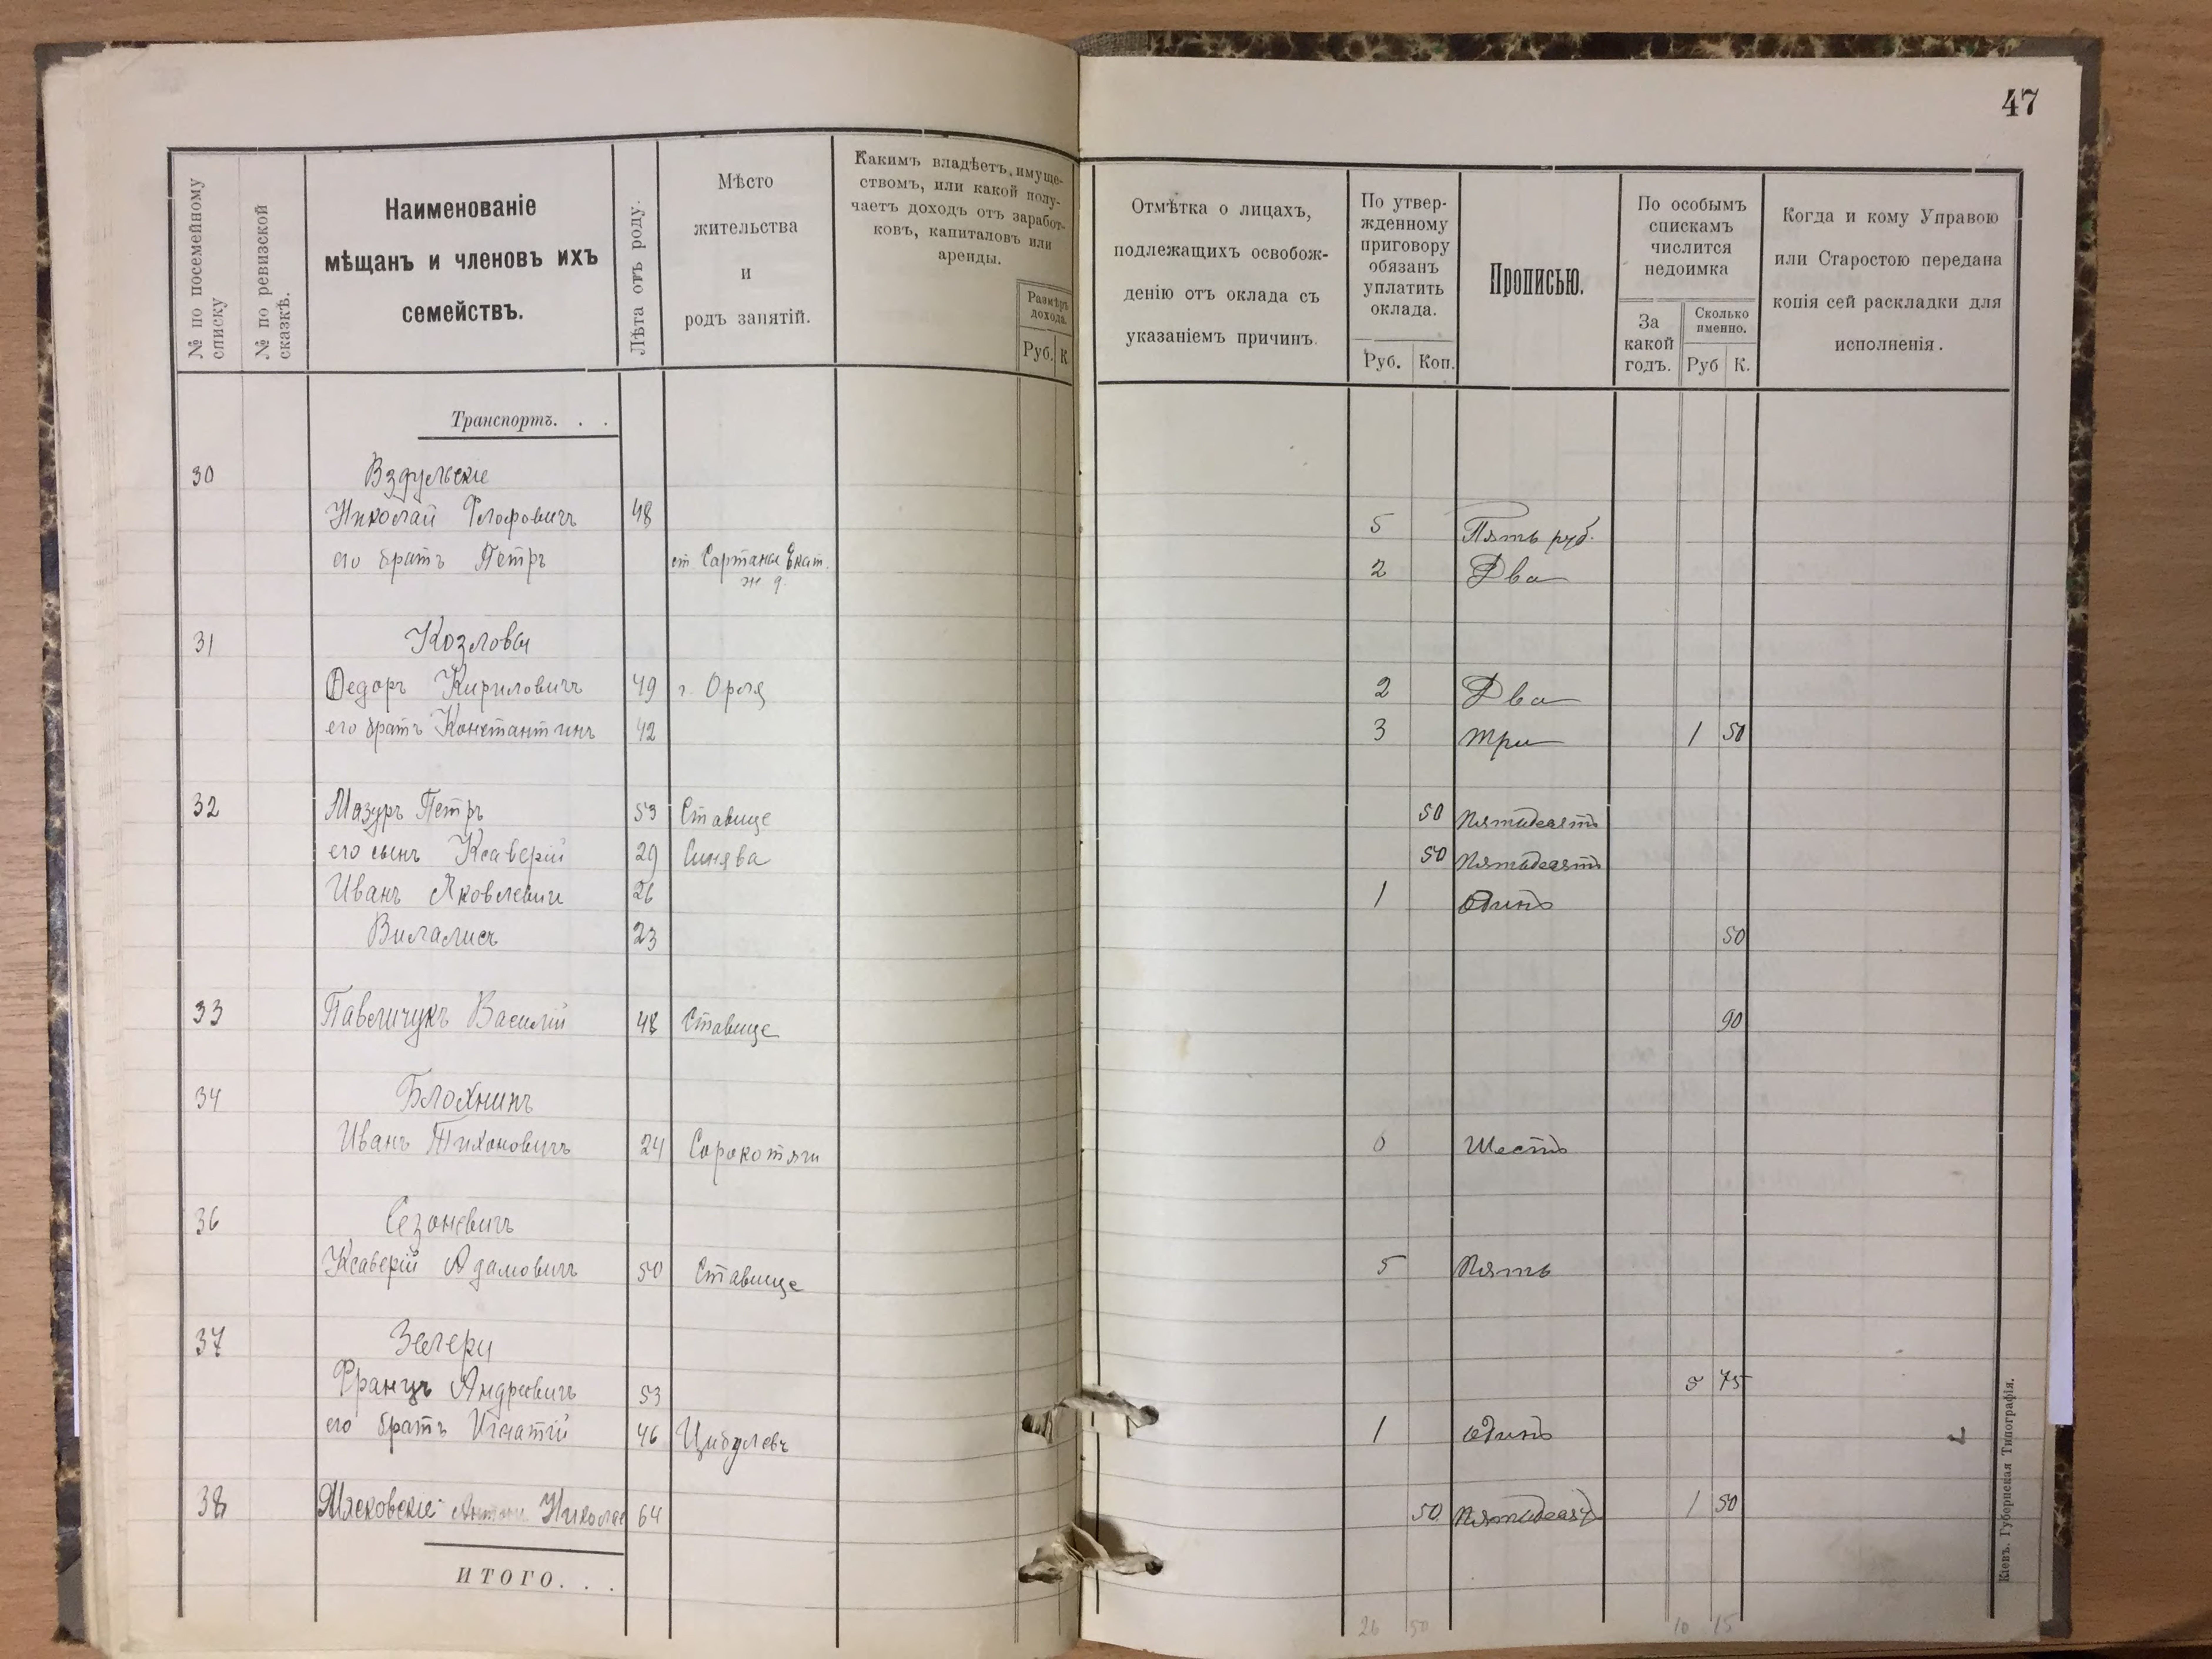 47
№ по посемейному списку
№ по ревизской сказкѣ.
Наименованіе
мѣщанъ и членовъ ихъ
семействъ.
Лѣта отъ роду.
Мѣсто
жительства
и
родъ занятій.
Какимъ владѣетъ имуще-
ствомъ, или какой полу-
чаетъ доходъ отъ заработ-
ковъ, капиталовъ или
аренды.
Размѣръ
дохода.
Руб. К
Отмѣтка о лицахъ,
подлежащихъ освобож-
денію отъ оклада съ
указаніемъ причинъ.
По утвер-
жденному
приговору
обязанъ
уплатить
оклада.
Руб. Коп.
Прописью.
По особымъ
спискамъ
числится
недоимка
За
какой
годъ.
Сколько
именно.
Руб К.
Когда и кому Управою
или Старостою передана
копія сей раскладки для
исполненія.
Транспортъ. . .
30 Вздульскіе
Николай 48 5 Пять руб.
его братъ Петръ ст. Сартана Екат. ж д. 2 Два
31 Козловы
Ѳедоръ Кириловичъ 49 г. Орля 2 Два
его братъ Константинъ 42 3 три 1 50
32 Мазуръ Петръ 53 Ставище 50 пятьдесятъ
его сынъ Ксаверій 29 Синява 50 пятьдесятъ
Иванъ Яковлевичъ 26 1 одинъ
23 50
33 Павличукъ Василій 48 Ставище 90
34 Блохнинъ
Иванъ Тихоновичъ 24 Сорокотяги 6 шесть
36 Сезоневичъ
Ксаверій Адамовичъ 50 Ставище 5 пять
37 Зегери
Францъ Андреевичъ 53 5 75
его братъ Игнатій 46 Цибулевъ 1 одинъ
38 Мясковскіе Антонъ Никола 64 50 пятьдесят 1 50
ИТОГО. . .
26 50 10 15
Кіевъ. Губернская Типографія.